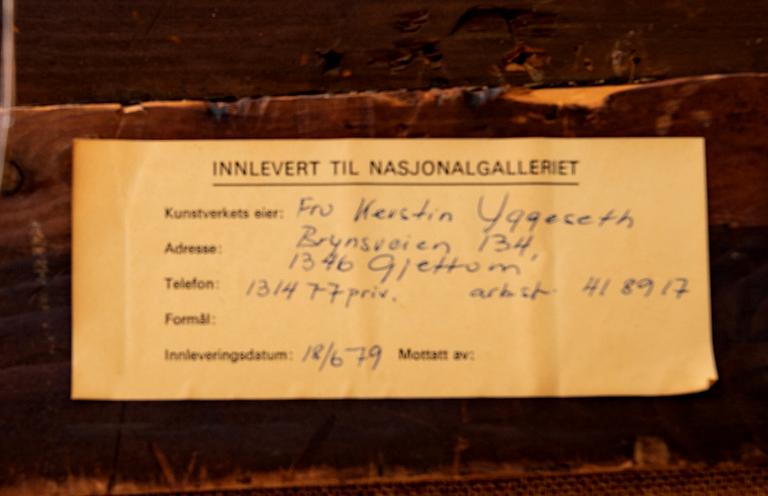 INNLEVERT TIL NASJONALGALLERIET
Kunstverkets eier: Fru Kerstin Yggeseth
Adresse: Brynsveien 134,
1346 Gjettum
Telefon: 131477 priv. arbst. 418917
Formål:
Innleveringsdatum: 18/6 79 Mottatt av: